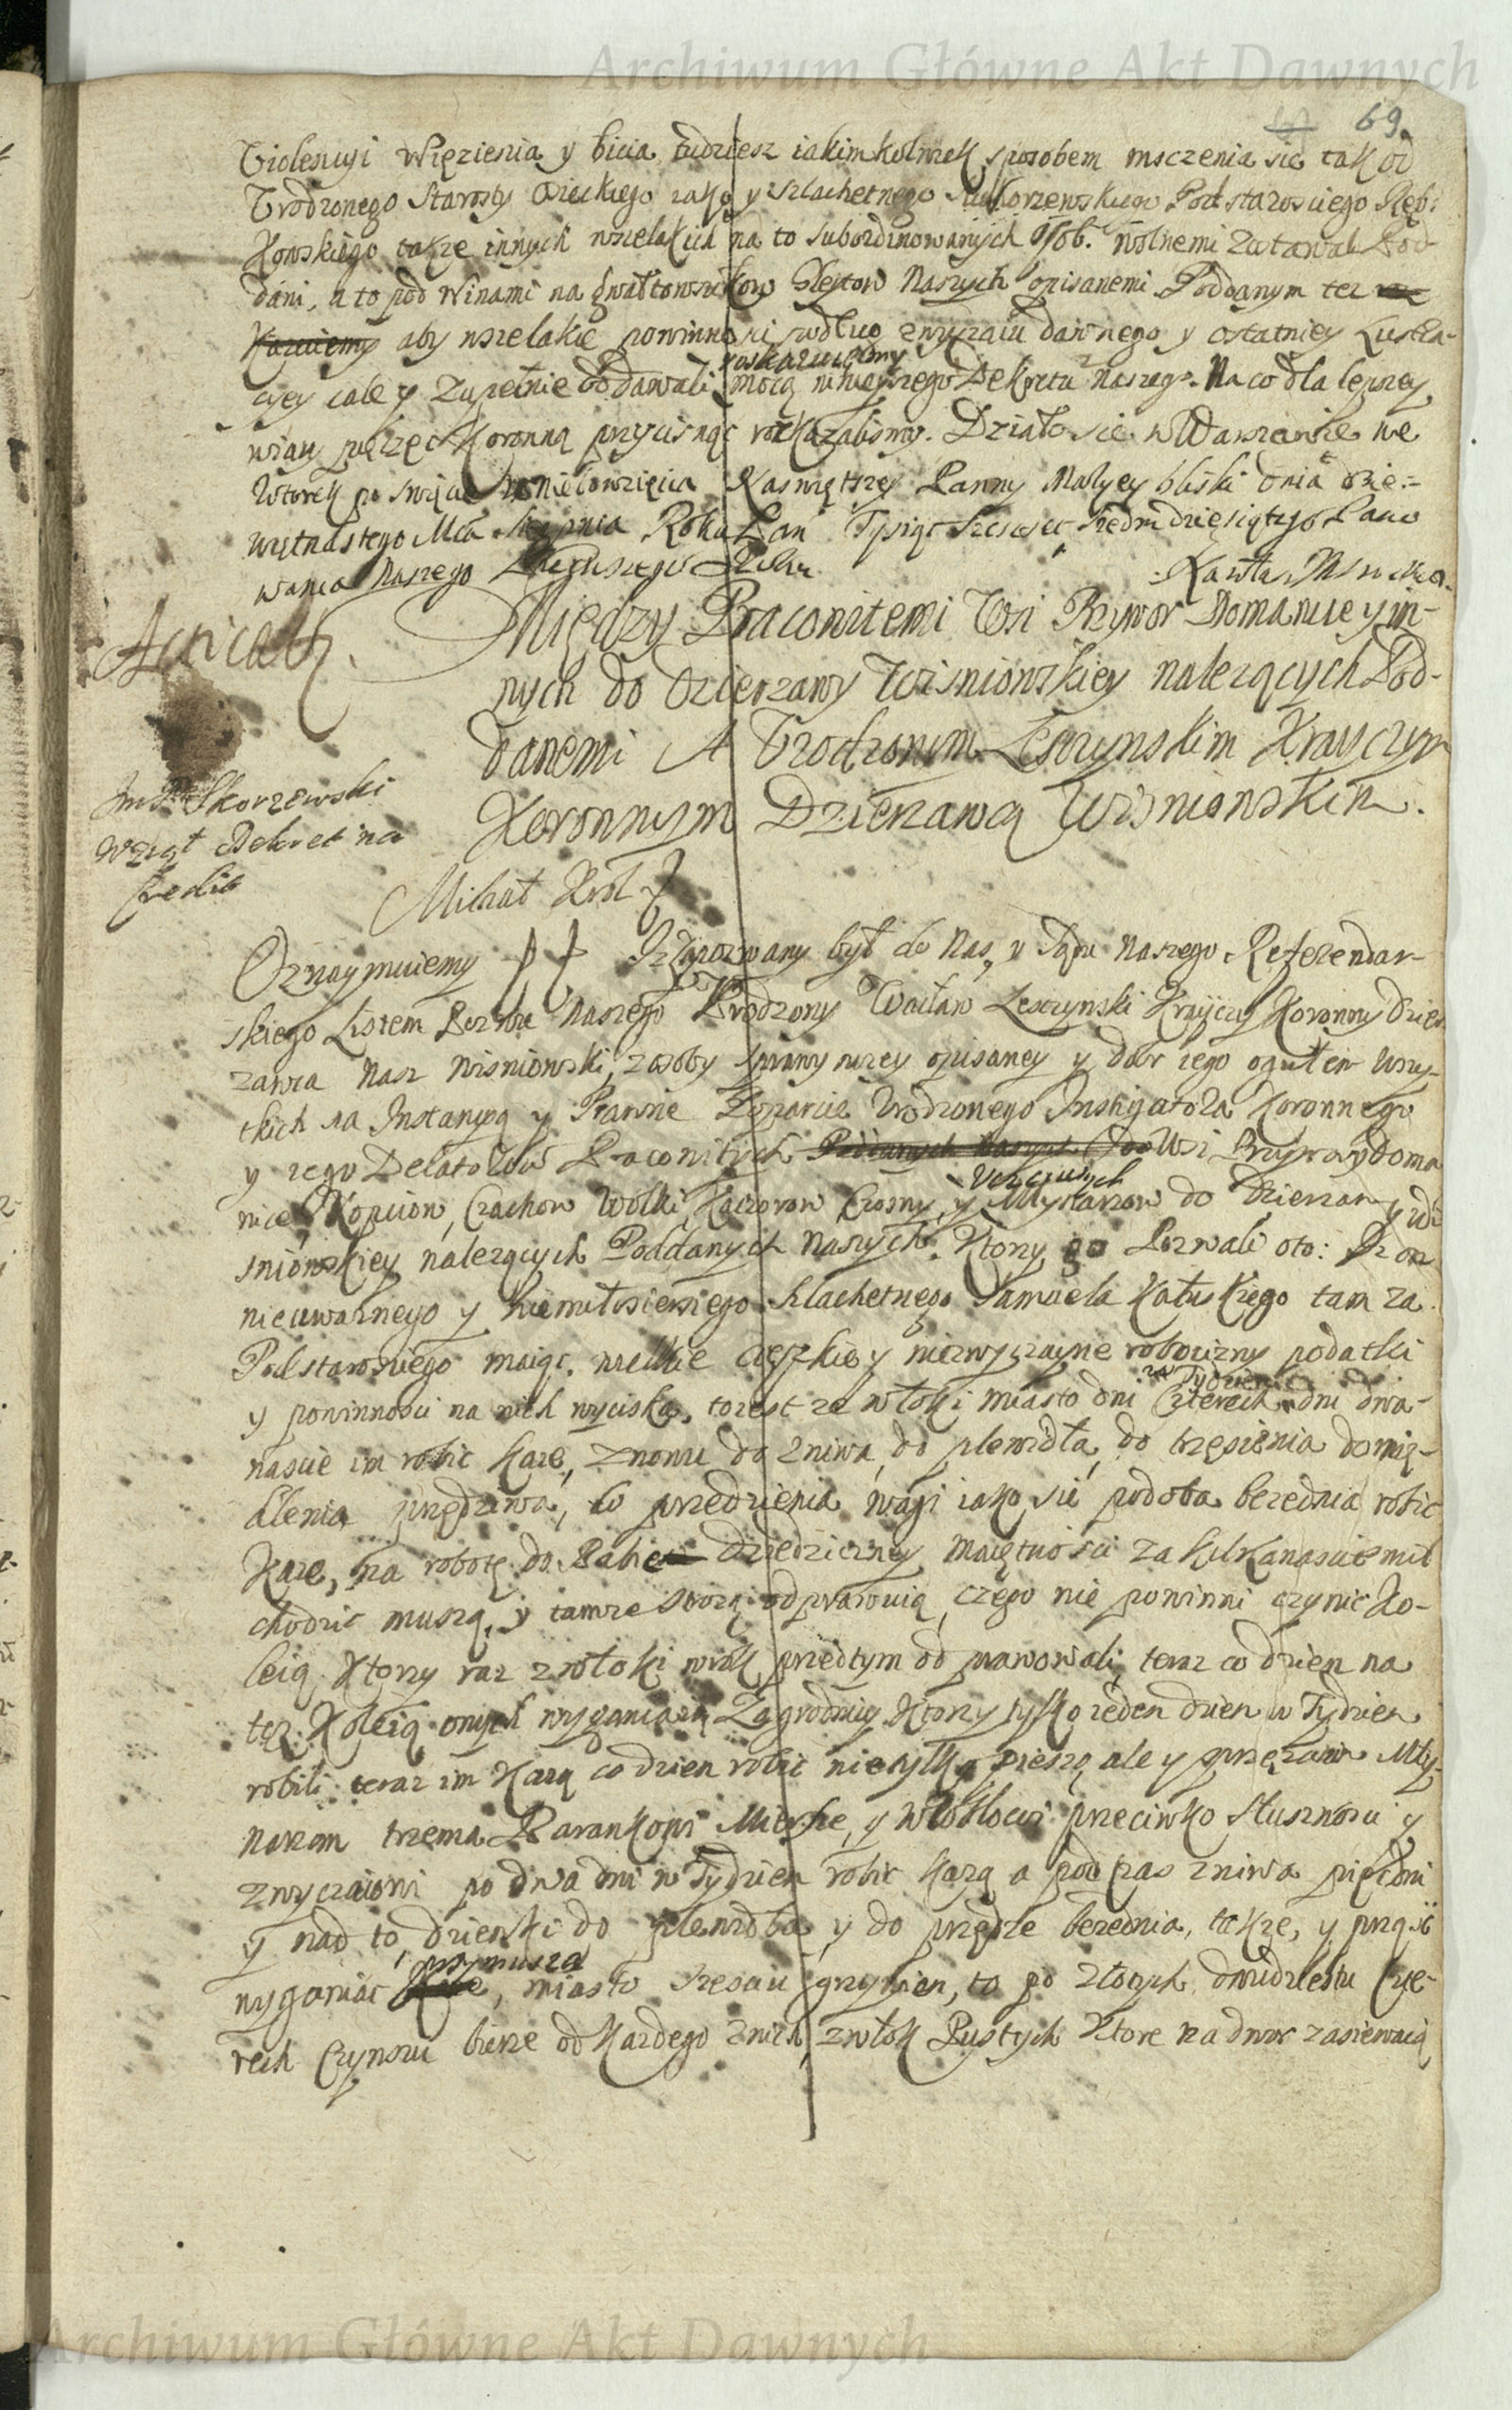 Archiwum Główne Akt Dawnych
69.
Violensyi Więzienia y bicia tudziesz iakimkolwiek sposobem msczenia się tak od
Vrodzonego Starosty Osieckiego iako y szlachetnego Podstarosciego
kowskiego także innych wszelakich na to subordinowanych Osob. wolnemi zostawali Pod-
dani, a to pod winami na gwałtownikow Gleytow Naszych opisanemi Poddanym tez
Kazuiemy aby wszelakie powinnosci podług zwyczaiu dawnego y ostatniey Lustra-
roskazuiemy
cyey cale y zupełnie oddawali mocą ninieyszego Dekretu Naszego. Na co dla lepszey
wiary pieczęc Koronną przycisnąc roskazalismy. Działo się w Warszawie we
Wtorek po swięcie Wniebowzięcia Naswiętszey Panny Maryey bliski dnia dzie-
więtnastego Mca Sierpnia Roku Pan Tysiąc Szescset Siedmdziesiątego Pano
wania Naszego Pierwszego Roku
Między Pracowitemi Wsi Przywor Domanice y in-
nych do Dzierzawy Wisniowskiey nalezących Pod-
danemi A Vrodzonym Lesczynskim Krayczym
Koronnym Dzierzawcą Wisniowskim.
Jm Pan Skorzewski
wziął Dekret na
Credit
Michał Krol
Oznaymuiemy Iz Zapozwany był do Nas, y Sądu Naszego Referendar-
skiego Listem Pozwu Naszego Vrodzony Wacław Lesczynski Krayczy Koronny dzier
zawca Nasz Wisniowski, z osoby sprawy nizey opisaney y dobr iego ogułem wszy-
tkich na Instancyą y Prawne Poparcie Vrodzonego Instigatora Koronnego
y iego Delatorow Pracowitych Poddanych Naszych Wsi Przywory Doma
Vczciwych
nice, Kopciow, Czachow Wolki Kaczorow Czosny, y Młynarzow do Dzierzawy Wi
sniowskiey nalezących Poddanych Naszych. Ktorzy go Pozwali oto: Iz on
nieuwaznego y niemiłosiernego Szlachetnego Samuela Kałuskiego tam za
Podstarosciego maiąc, wielkie cięszkie y niezwyczayne robocizny podatki
y powinnosci na nich wyciska, to iest ze włoki miasto dni Czterech dni dwa-
na Tydzien
nascie im robic kaze, znowu do zniwa, do plewidła, do trzęsienia do mię-
dlenia przędziwa, do przedzienia wagi iako się podoba bezednia robic
kaze, na robotę do Dziedziczney maiętnosci za kilkanascie mil
chodzic muszą, y tamze strozą odprawuią, czego nie powinni czynic Ko-
leią, Ktorzy raz z włoki przedtym odprawowali, teraz co dzien na
tęz Koleią onych wyganiaią Zagrodnicy Ktorzy tylko ieden dzien w Tydzien
robili teraz im Każą co dzien robic nie tylko pieszą ale y sprzężaiem Mły-
narzom trzema Barankowi Miesze, y Włosłocusi przeciwko słusznosci y
zwyczaiowi po dwa dni w Tydzien robic każą a podczas zniwa pięc dni
y nad to dzienki do plewidła, y do przędze bezednia, takze, y prząsc
przymusza
wyganiac, miasto szesciu grzywien, to po złotych dwudziestu Czte-
rech Czynszu bierze od kazdego z nich, z włok Pustych Ktore na dwor zasiewaią
Archiwum Główne Akt Dawnych